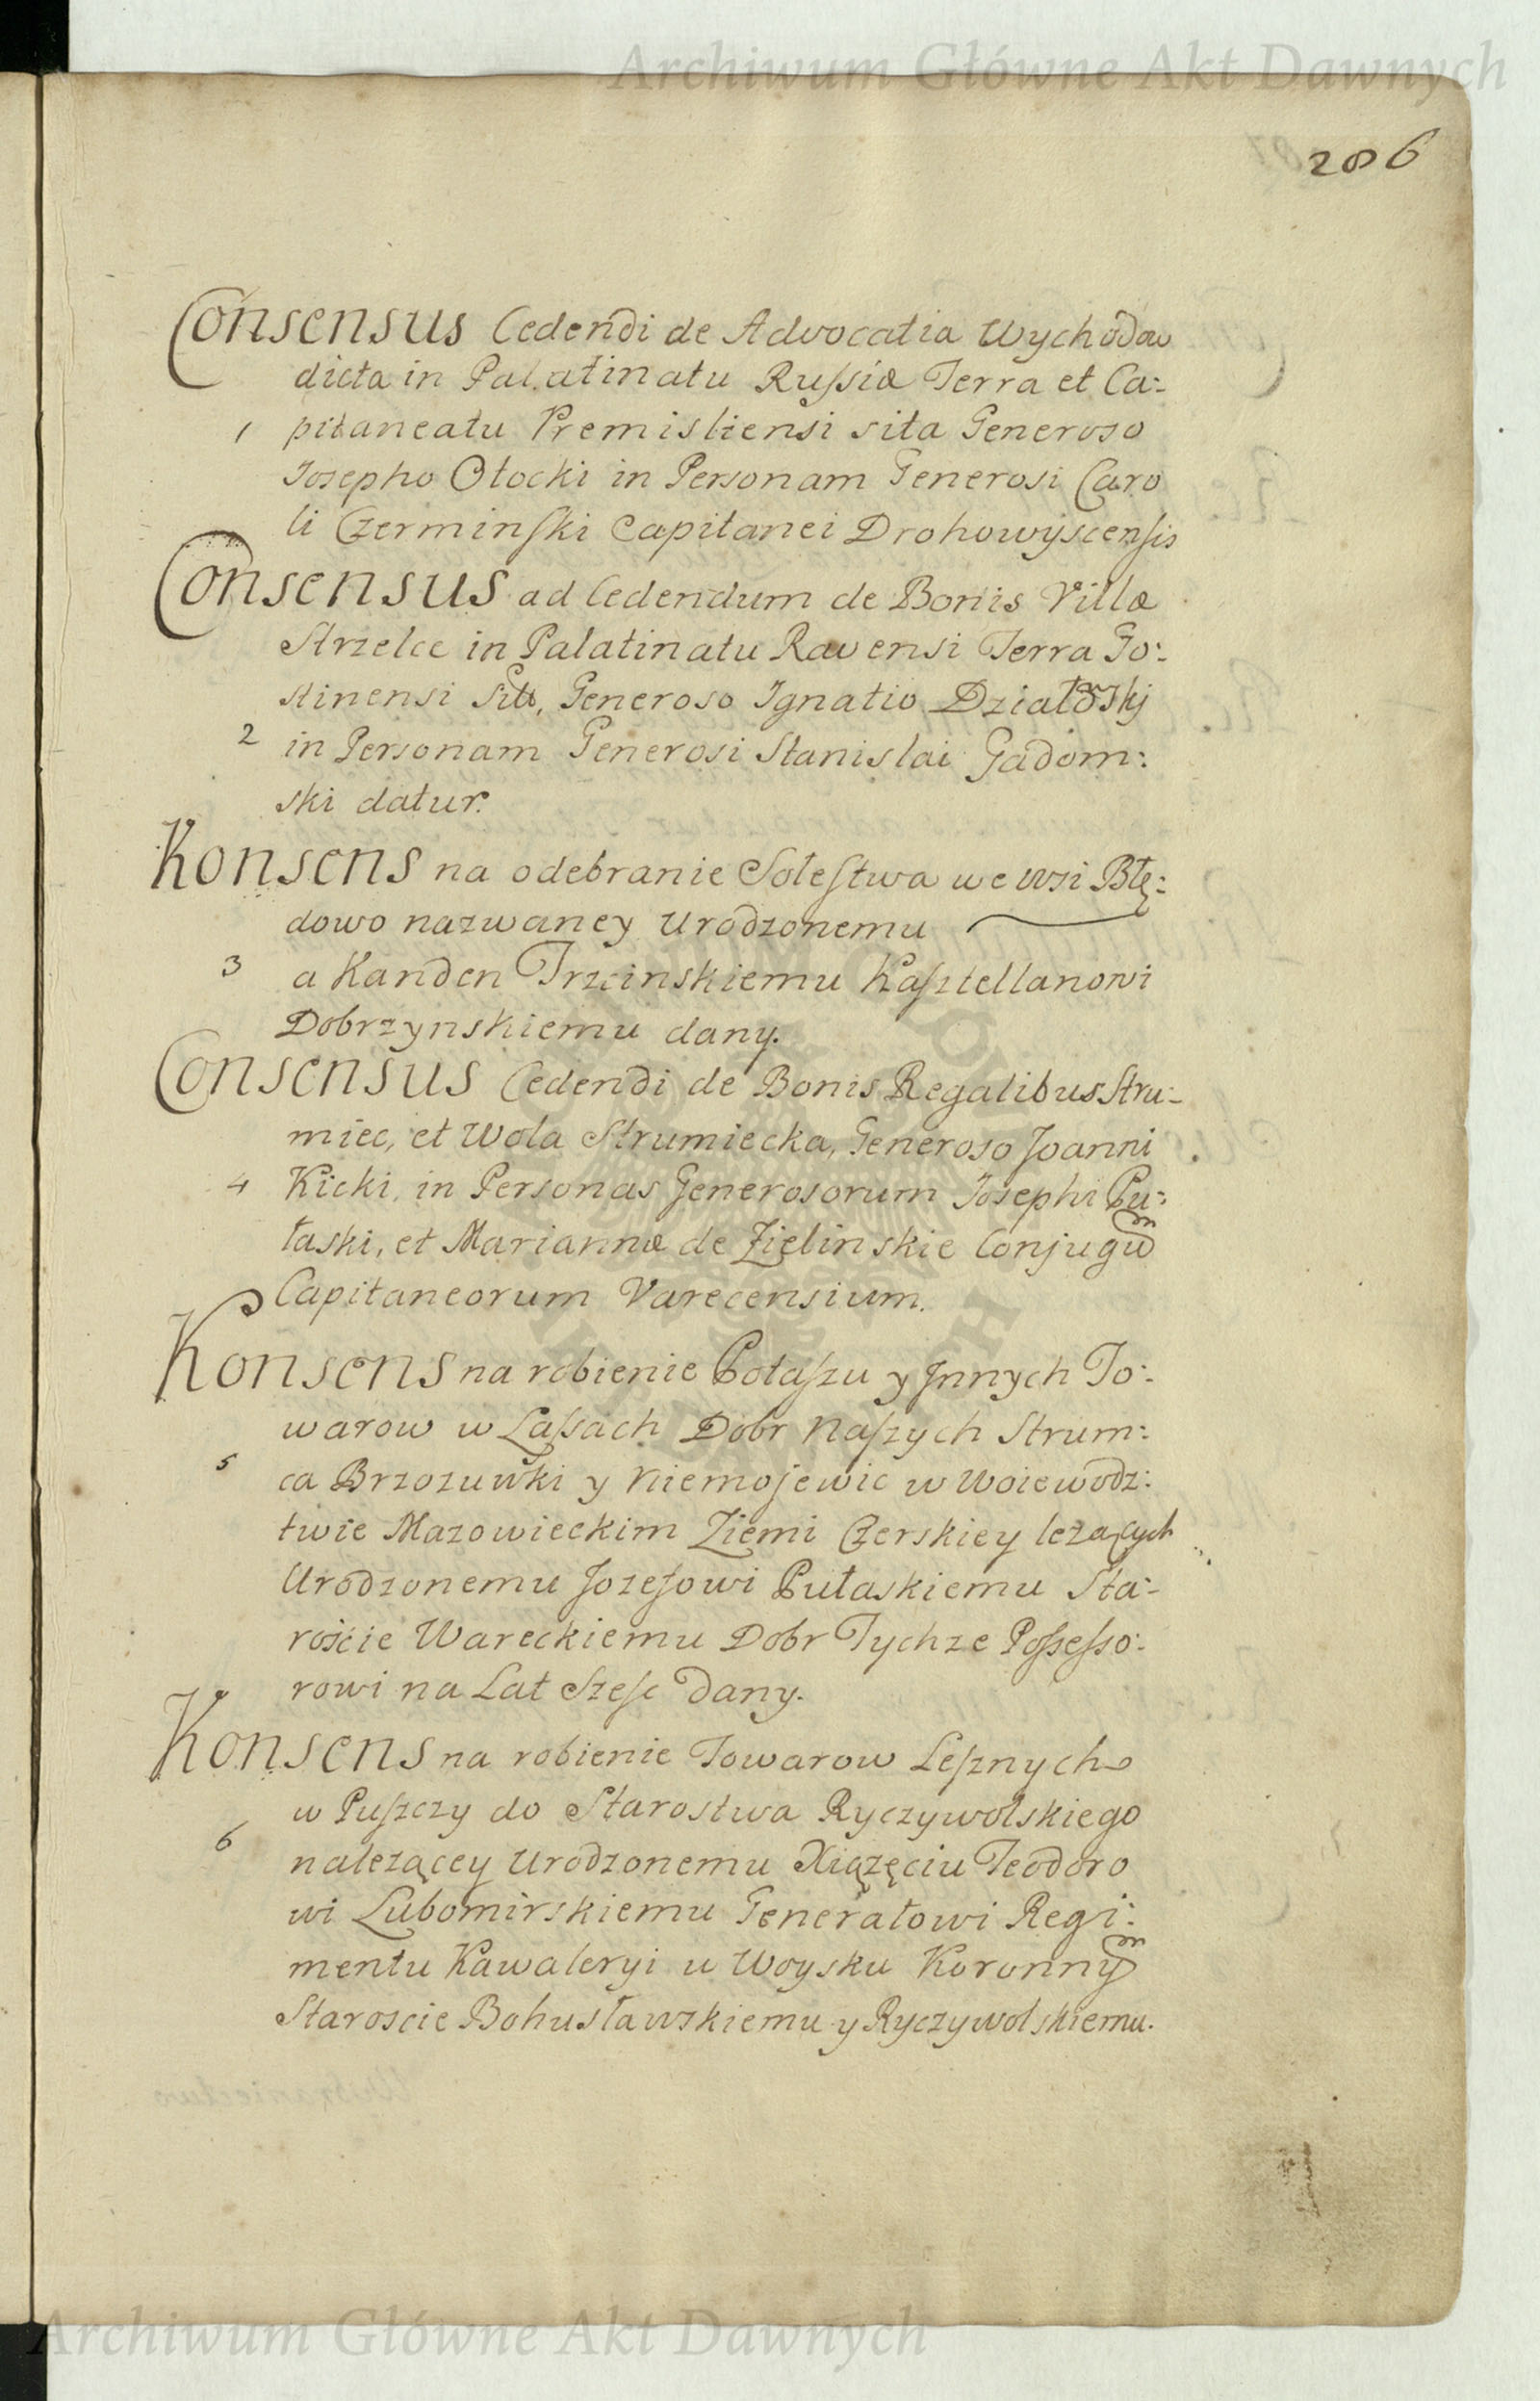 Archiwum Główne Akt Dawnych
206
Consensus Cedendi de Advocatia Wychodow
dicta in Palatinatu Russiæ Terra et Ca:
1 pitaneatu Premisliensi sita Generoso
Josepho Otocki in Personam Generosi Caro
li Czerminski Capitanei Drohowyscensis
Consensus ad Cedendum de Bonis Villæ
Strzelce in Palatinatu Ravensi Terra Go:
stinensi Generoso Ignatio Działowskj
2 in Personam Generosi Stanislai Gadom:
ski datur.
Konsens na odebranie Sołestwa we wsi Błę:
dowo nazwaney Urodzonemu
3 a Kanden Trzcinskiemu Kasztellanowi
Dobrzynskiemu dany.
Consensus Cedendi de Bonis Regalibus Stru:
miec, et Wola Strumiecka, Generoso Joanni
4 Kicki, in Personas Generosorum Josephi Pu:
łaski, et Mariannæ de Zięlinskie Conjugũ
Capitaneorum Varecensium.
Konsens na robienie Potaszu y Innych To:
warow w Lassach Dobr Naszych Strum:
5 ca Brzozuwki y Niemojewic w Woiewodz:
twie Mazowieckim Ziemi Czerskiey lezących
Urodzonemu Jozefowi Pułaskiemu Sta:
roście Wareckiemu Dobr Tychze Possesso:
rowi na Lat Szesc Dany.
Konsens na robienie Towarow Lesznych
w Puszczy do Starostwa Ryczywolskiego
6 nalezącey Urodzonemu Xiązęciu Teodoro
wi Lubomirskiemu Generałowi Regi:
mentu Kawaleryi w Woysku Koronnỹ
Staroscie Bohusławskiemu y Ryczywolskiemu.
Archiwum Główne Akt Dawnych